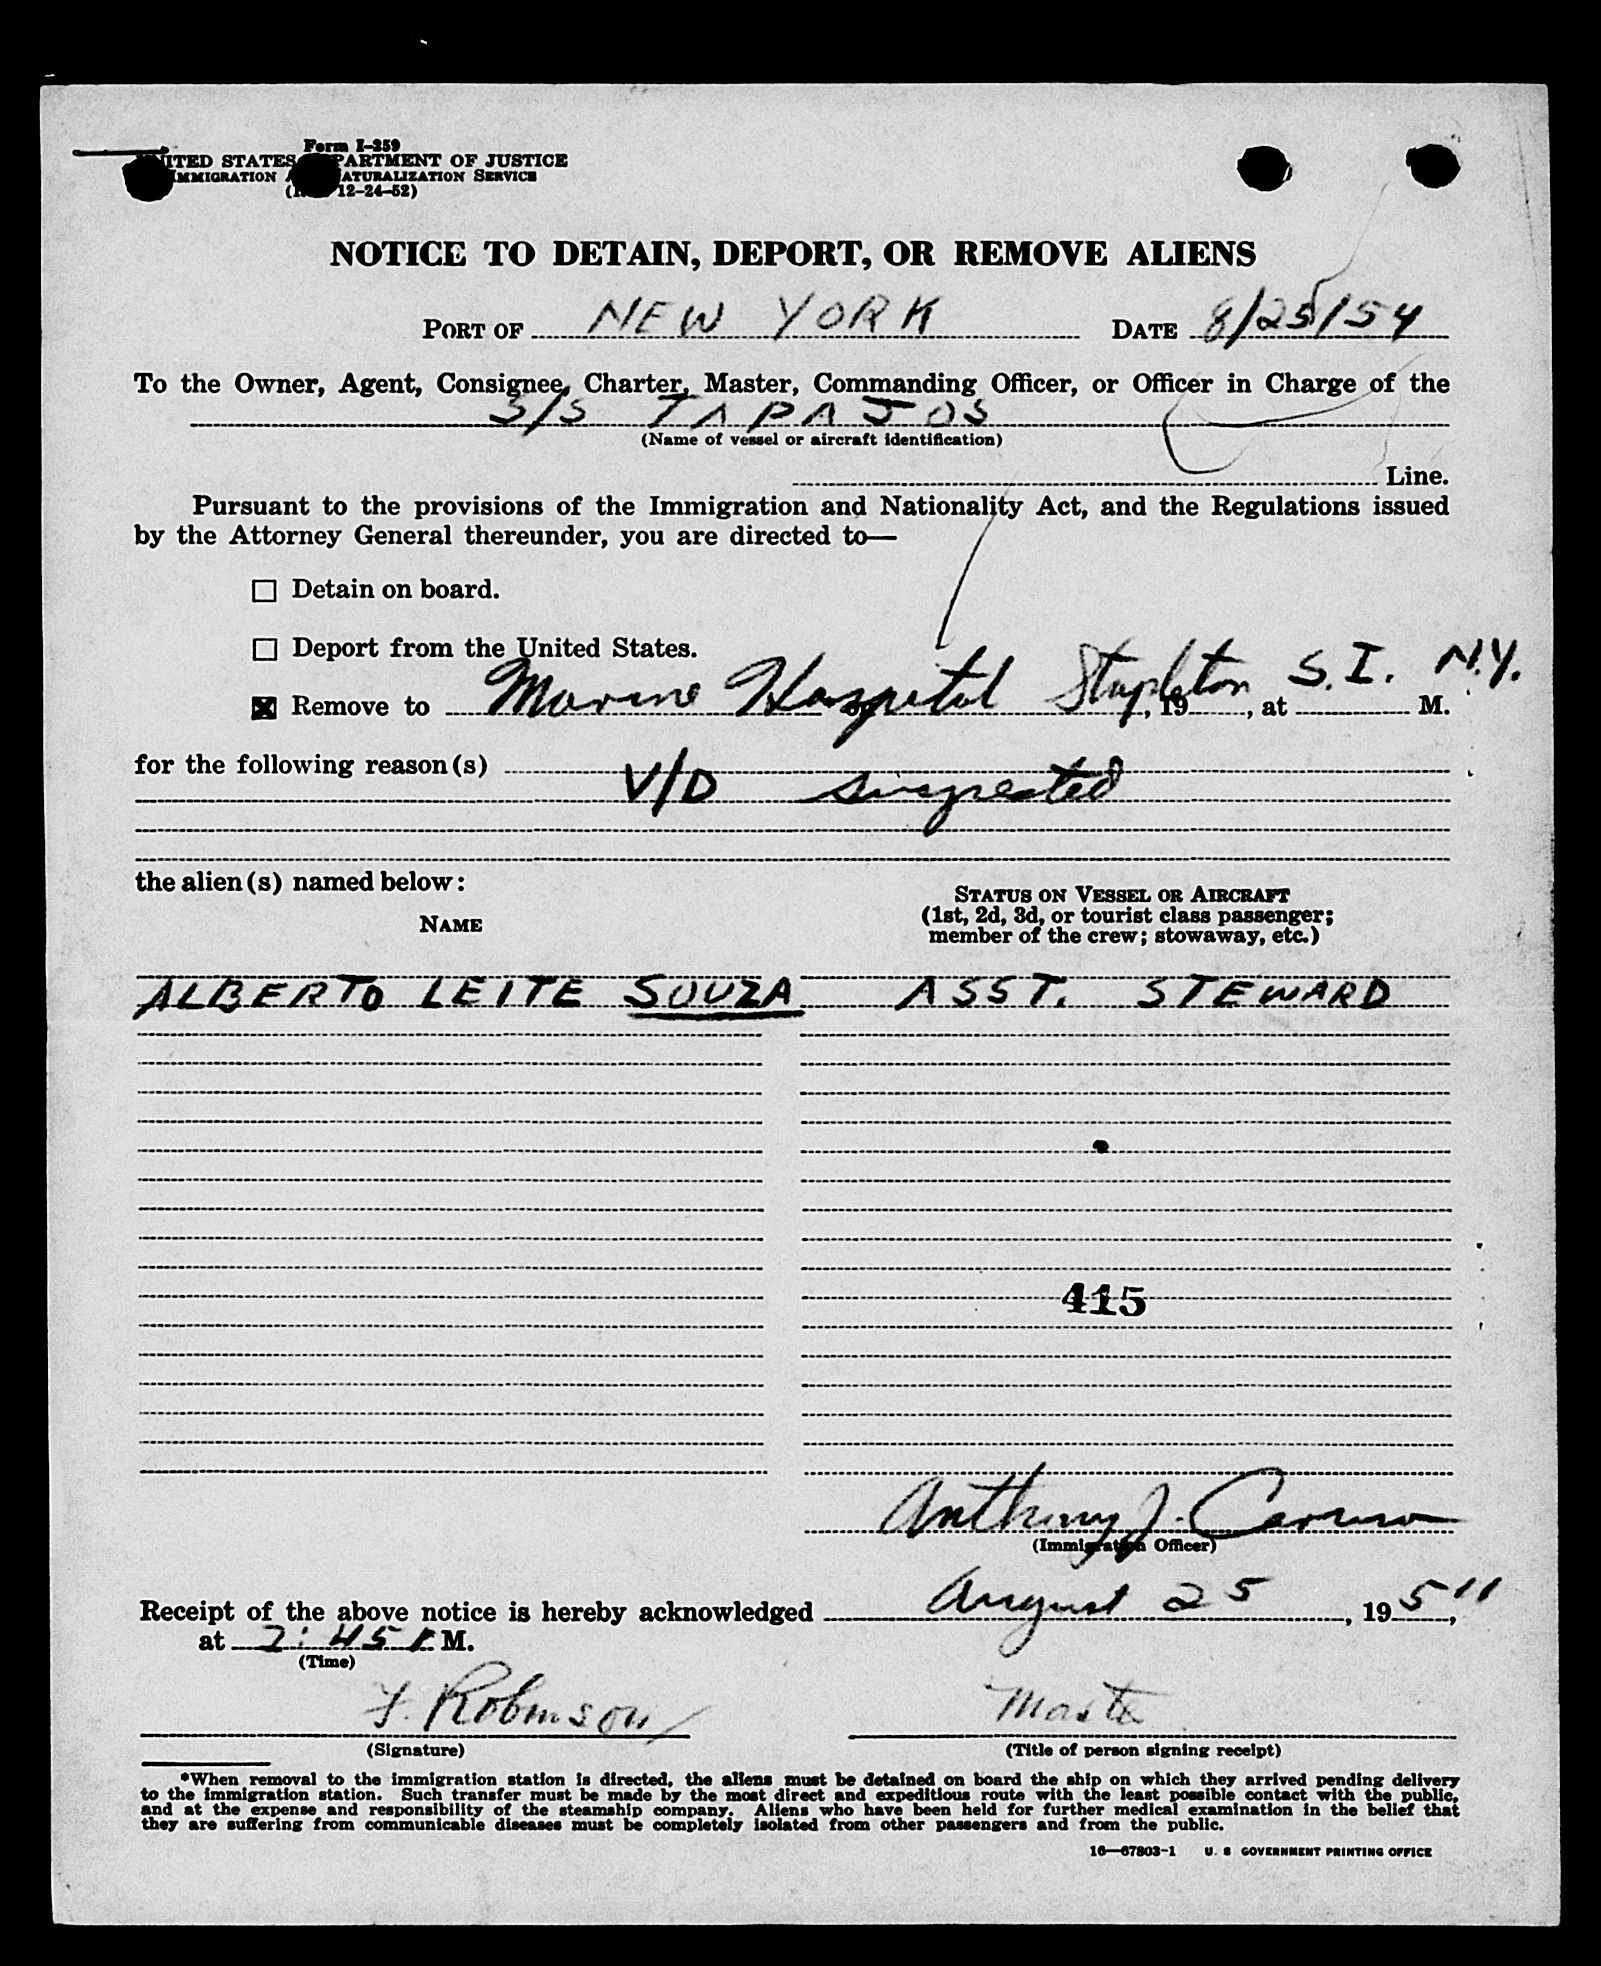 Form I-259
UNITED STATES DEPARTMENT OF JUSTICE
IMMIGRATION AND NATURALIZATION SERVICE
12-24-52)
NOTICE TO DETAIN, DEPORT, OR REMOVE ALIENS
PORT OF NEW YORK DATE 8/25/54
To the Owner, Agent, Consignee, Charter, Master, Commanding Officer, or Officer in Charge of the
S/S TAPAJOS
(Name of vessel or aircraft identification)
Line.
Pursuant to the provisions of the Immigration and Nationality Act, and the Regulations issued
by the Attorney General thereunder, you are directed to—
☐ Detain on board.
☐ Deport from the United States.
☒ Remove to Marine Hospital Stapleton S.I. N.Y., 19 , at M.
for the following reason(s)
V/D suspected
the alien(s) named below:
NAME
STATUS ON VESSEL OR AIRCRAFT
(1st, 2d, 3d, or tourist class passenger;
member of the crew; stowaway, etc.)
ALBERTO LEITE SOUZA ASST. STEWARD
415
Anthony J. Caruso
(Immigration Officer)
Receipt of the above notice is hereby acknowledged August 25, 195
at 2:45 P. M.
(Time)
F. Robinson
Master
(Signature)
(Title of person signing receipt)
*When removal to the immigration station is directed, the aliens must be detained on board the ship on which they arrived pending delivery
to the immigration station. Such transfer must be made by the most direct and expeditious route with the least possible contact with the public,
and at the expense and responsibility of the steamship company. Aliens who have been held for further medical examination in the belief that
they are suffering from communicable diseases must be completely isolated from other passengers and from the public.
16—67803-1 U. S GOVERNMENT PRINTING OFFICE